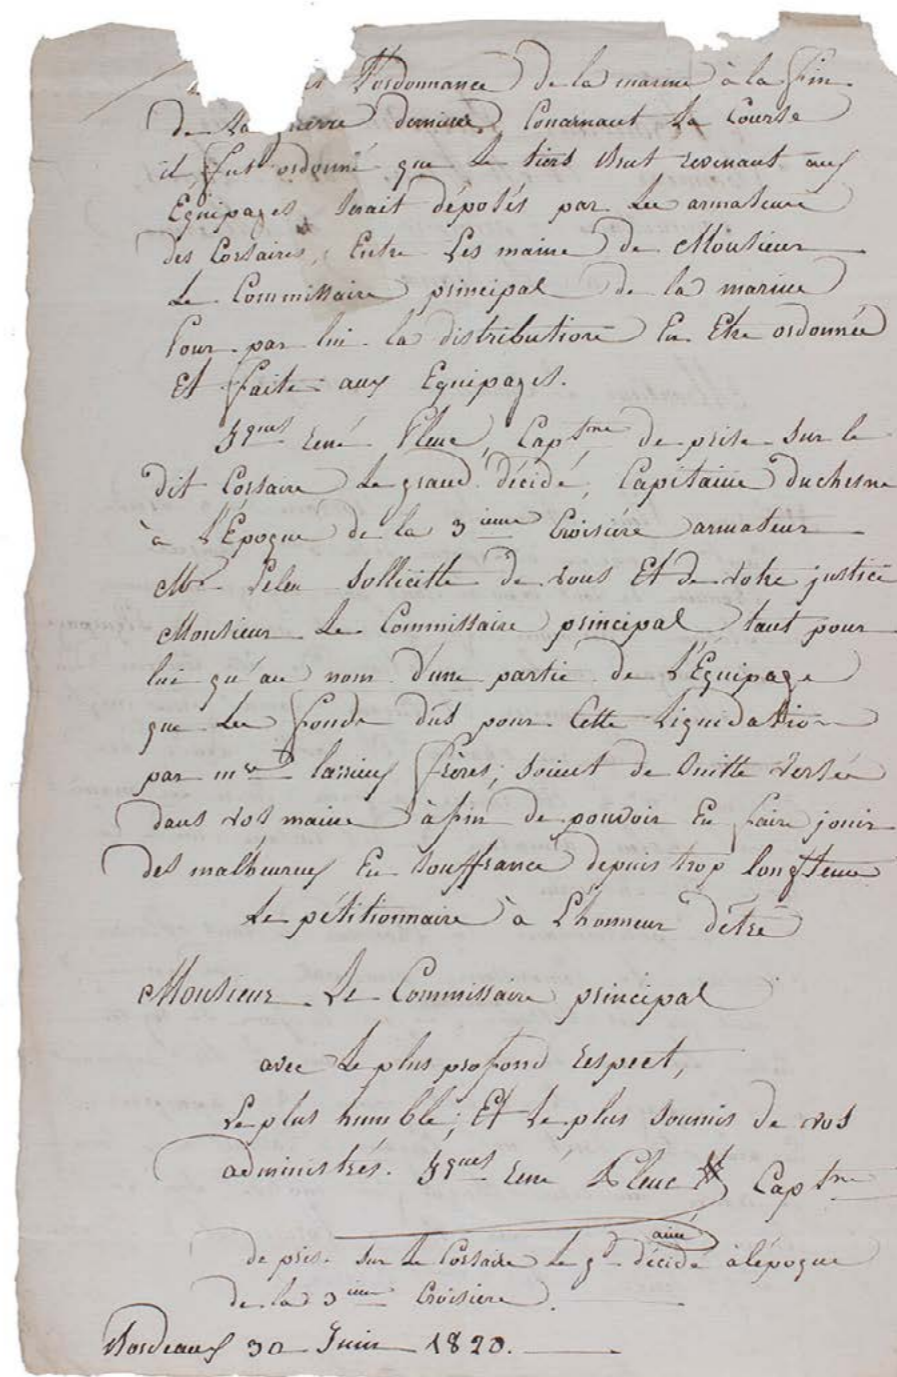 l'ordonnance de la marine à la fin
de la guerre derniere, Concernant la Course
il fut ordonné que le tiers brut revenant aux
Equipages, serait déposés par les armateurs
des Corsaires, Entre les mains de Monsieur
Le Commissaire principal de la marine
Pour par lui la distribution En Etre ordonnée
Et faite aux Equipages.
René Cap^tne de prise sur le
dit Corsaire Le grand décidé, Capitaine duchesne
à l'Epoque de la 3^ieme Croisiére armateur
Mr. sollicitte de vous Et de votre justice
Monsieur Le Commissaire principal tant pour
lui qu'au nom d'une partie de L'Equipage
que les fonds dus pour Cette Liquidation
par m^rs frères, soient de suitte versés
dans vos mains à fin de pouvoir En faire jouir
des malheureux En souffrance depuis trop longtems
Le pétitionnaire à L'honneur d'étre
Monsieur Le Commissaire principal
avec Le plus profond respect,
Le plus humble, Et Le plus soumis de vos
administrés. René Cap^tne
ainé
de prise sur Le Corsaire Le g^d décidé à l'époque
de la 3^ieme Croisiere.
Bordeaux 30 Juin 1820.